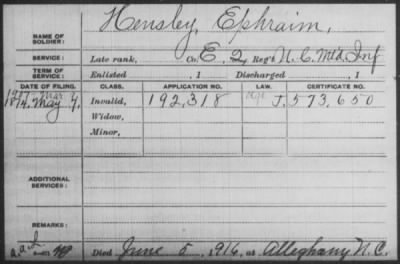 NAME OF SOLDIER: Hensley, Ephraim,
SERVICE: Late rank, Co. E, 2 Reg't N. C. Mtd. Inf
TERM OF SERVICE: Enlisted , 1 Discharged , 1
DATE OF FILING. CLASS. APPLICATION NO. LAW. CERTIFICATE NO.
1874. May 7. Invalid, 192,318 J. 573.650
Widow,
Minor,
ADDITIONAL SERVICES:
REMARKS:
Died June 5, 1916, at Alleghany N.C.